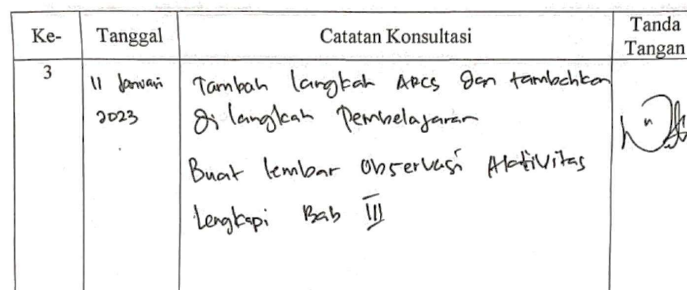 Ke- Tanggal Catatan Konsultasi Tanda Tangan
3 11 Januari 2023
Tambah langkah ARCS dan tambahkan
di langkah Pembelajaran
Buat lembar Observasi Aktivitas
Lengkapi Bab III